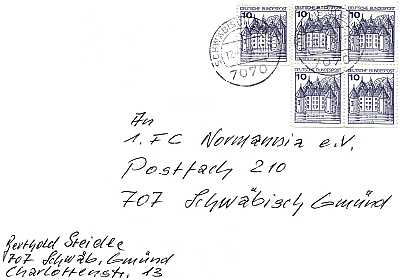 10 DEUTSCHE BUNDESPOST
10 DEUTSCHE BUNDESPOST
10 DEUTSCHE BUNDESPOST
10 DEUTSCHE BUNDESPOST
10 DEUTSCHE BUNDESPOST
7070
An
1. FC Normannia e.V.
Postfach 210
707 Schwäbisch Gmünd
Berthold Steidle
707 Schwäb. Gmünd
Charlottenstr. 13